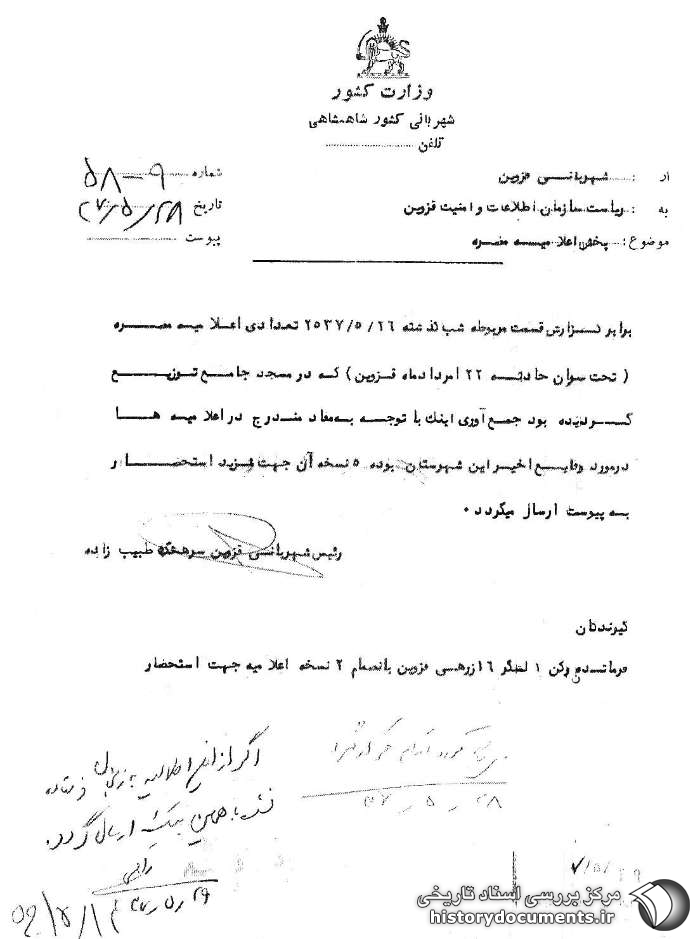 وزارت کشور
شهربانی کشور شاهنشاهی
تلفن
از : شهربانی قزوین
شماره ۹-۵۸
به : ریاست سازمان اطلاعات و امنیت قزوین
تاریخ ۳۷/۵/۲۸
موضوع : پخش اعلامیه مضره
پیوست
برابر گزارش قسمت مربوطه شب گذشته ۲۵۳۷/۵/۲۶ تعدادی اعلامیه مضره
( تحت عنوان حادثه ۲۲ امردادماه قزوین ) که در مسجد جامع توزیع
گردیده بود جمع آوری اینک با توجه به مفاد مندرج در اعلامیه ها
درمورد وقایع اخیر این شهرستان بوده ۵ نسخه آن جهت مزید استحضار
به پیوست ارسال میگردد .
رئیس شهربانی قزوین سرهنگ طبیب زاده
گیرندگان
فرمانده رکن ۱ لشگر ۱۶ زرهی قزوین بانضمام ۲ نسخه اعلامیه جهت استحضار
اگر از این اطلاعیه به
با همین پیک ارسال گردد.
۳۷/۵/۲۸
۳۷/۵/۲۹
مرکز بررسی اسناد تاریخی
historydocuments.ir